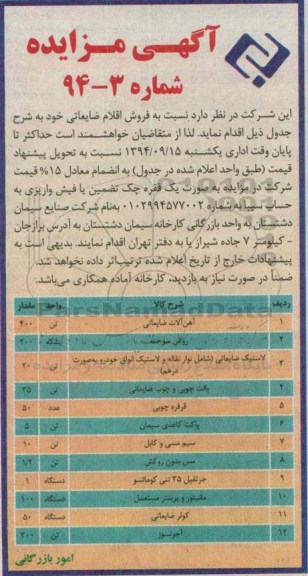 آگهی مزایده
شماره ۳-۹۴
این شرکت در نظر دارد نسبت به فروش اقلام ضایعاتی خود به شرح
جدول ذیل اقدام نماید. لذا از متقاضیان خواهشمند است حداکثر تا
پایان وقت اداری یکشنبه ۱۳۹۴/۰۹/۱۵ نسبت به تحویل پیشنهاد
قیمت (طبق واحد اعلام شده در جدول) به انضمام معادل ۱۵% قیمت
شرکت در مزایده به صورت یک فقره چک تضمین یا فیش واریزی به
حساب سیبا به شماره ۰۱۰۲۹۹۴۵۷۷۰۰۲ به‌نام شرکت صنایع سیمان
دشتستان به واحد بازرگانی کارخانه سیمان دشتستان به آدرس برازجان
- کیلومتر ۷ جاده شیراز یا به دفتر تهران اقدام نمایند. بدیهی است به
پیشنهادات خارج از تاریخ اعلام شده ترتیب‌اثر داده نخواهد شد.
ضمناً در صورت نیاز به بازدید، کارخانه آماده همکاری می‌باشد.
ردیف شرح کالا واحد مقدار
۱ آهن‌آلات ضایعاتی تن ۴۰۰
۲ روغن سوخته بشکه ۲۰۰
۳ لاستیک ضایعاتی (شامل نوار نقاله و لاستیک انواع خودرو به‌صورت
درهم) تن ۲۰
۴ پالت چوبی و چوب ضایعاتی تن ۳۵
۵ قرقره چوبی عدد ۵۰
۶ پاکت کاغذی سیمان تن ۵
۷ سیم مسی و کابل تن ۱۰
۸ مس بدون روکش تن ۱/۲
۹ جرثقیل ۳۵ تنی کوماتسو دستگاه ۱
۱۰ مانیتور و پرینتر مستعمل دستگاه ۱۰۰
۱۱ کولر ضایعاتی دستگاه ۵۰
۱۲ آجرنسوز تن ۳۰۰
امور بازرگانی